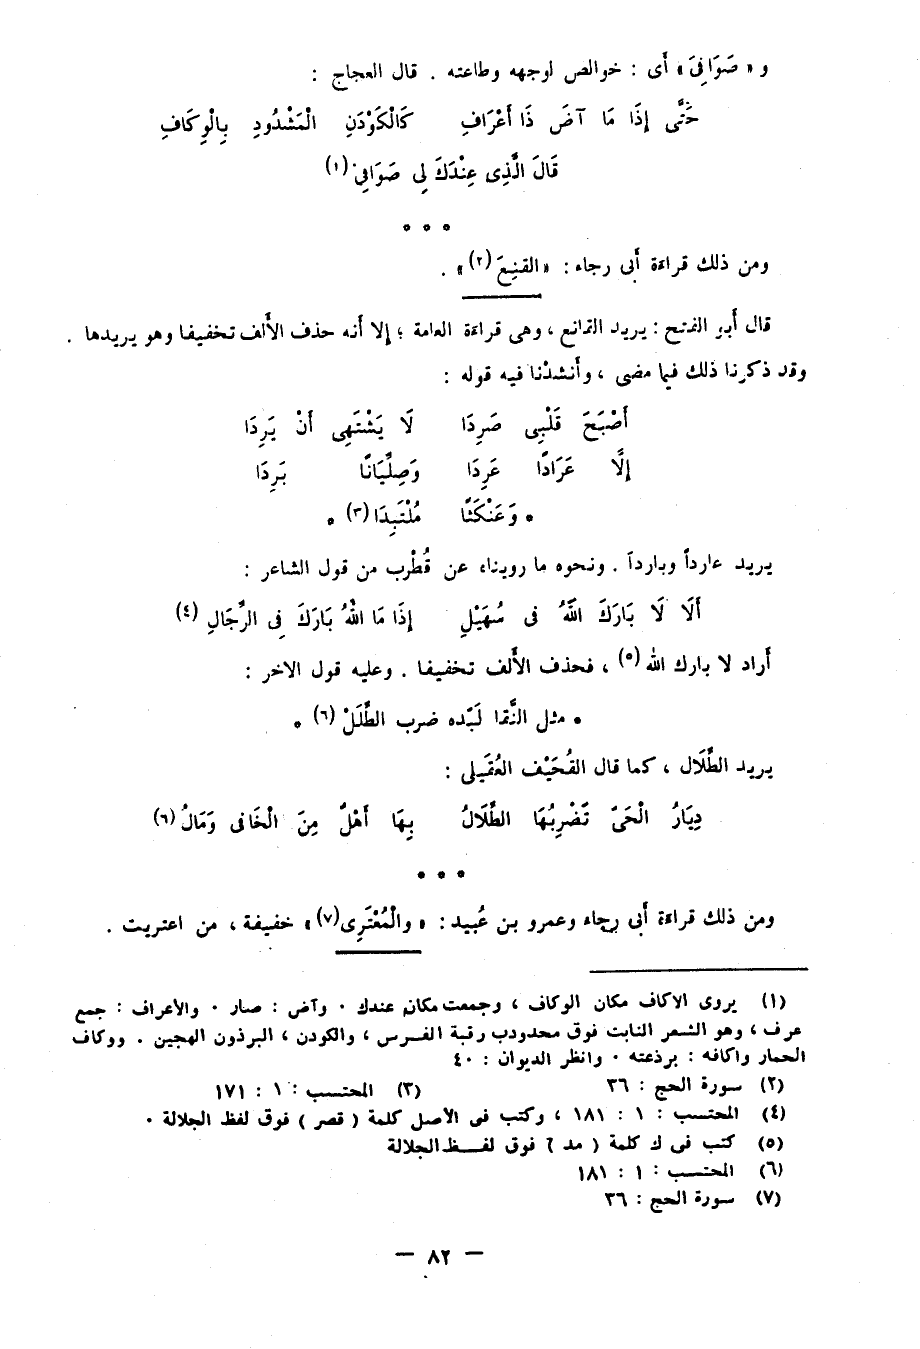 و « صَوَافِيَ » أى : خوالص لوجهه وطاعته . قال العجاج :
حَتَّى إِذَا مَا آضَ ذَا أَعْرَافِ كَالْكَوْدَنِ الْمَشْدُودِ بِالْوِكَافِ
قَالَ الَّذِى عِنْدَكَ لِى صَوَافِى (١)
* * *
ومن ذلك قراءة أبى رجاء : « القنِعَ (٢) » .
قال أبو الفتح : يريد القانع ، وهى قراءة العامة ؛ إلا أنه حذف الألف تخفيفا وهو يريدها .
وقد ذكرنا ذلك فيما مضى ، وأنشدْنا فيه قوله :
أَصْبَحَ قَلْبِى صَرِدَا لَا يَشْتَهِى أَنْ يَرِدَا
إِلَّا عَرَادًا عَرِدَا وَصِلِّيَانًا بَرِدَا
* وَعَنْكَثًا مُلْتَبِدَا (٣) *
يريد عارداً وبارداً . ونحوه ما رويناه عن قُطْرب من قول الشاعر :
أَلَا لَا بَارَكَ اللَّهُ فى سُهَيْلٍ إِذَا مَا اللَّهُ بَارَكَ فِى الرِّجَالِ (٤)
أراد لا بارك الله (٥) ، فحذف الألف تخفيفا . وعليه قول الآخر :
* مثل النَّقا لَبّده ضرب الطَّلَلْ (٦) *
يريد الطَّلَال ، كما قال القُحَيْف العُقَيلى :
دِيَارُ الْحَىّ تَضْرِبُهَا الطَّلَالُ بِهَا أَهْلٌ مِنَ الْخَافى وَمَالُ (٦)
* * *
ومن ذلك قراءة أبى رجاء وعمرو بن عُبيد : « والْمُعْتَرِى (٧) » خفيفة ، من اعتريت .
(١) يروى الاكاف مكان الوكاف ، وجمعت مكان عندك . وآض : صار . والأعراف : جمع
عرف ، وهو الشعر النابت فوق محدودب رقبة الفرس ، والكودن ، البرذون الهجين . ووكاف
الحمار واكافه : برذعته . وانظر الديوان : ٤٠
(٢) سورة الحج : ٣٦ (٣) المحتسب : ١ : ١٧١
(٤) المحتسب : ١ : ١٨١ ، وكتب فى الأصل كلمة ( قصر ) فوق لفظ الجلالة .
(٥) كتب فى ك كلمة ( مد ) فوق لفظ الجلالة
(٦) المحتسب : ١ : ١٨١
(٧) سورة الحج : ٣٦
— ٨٢ —